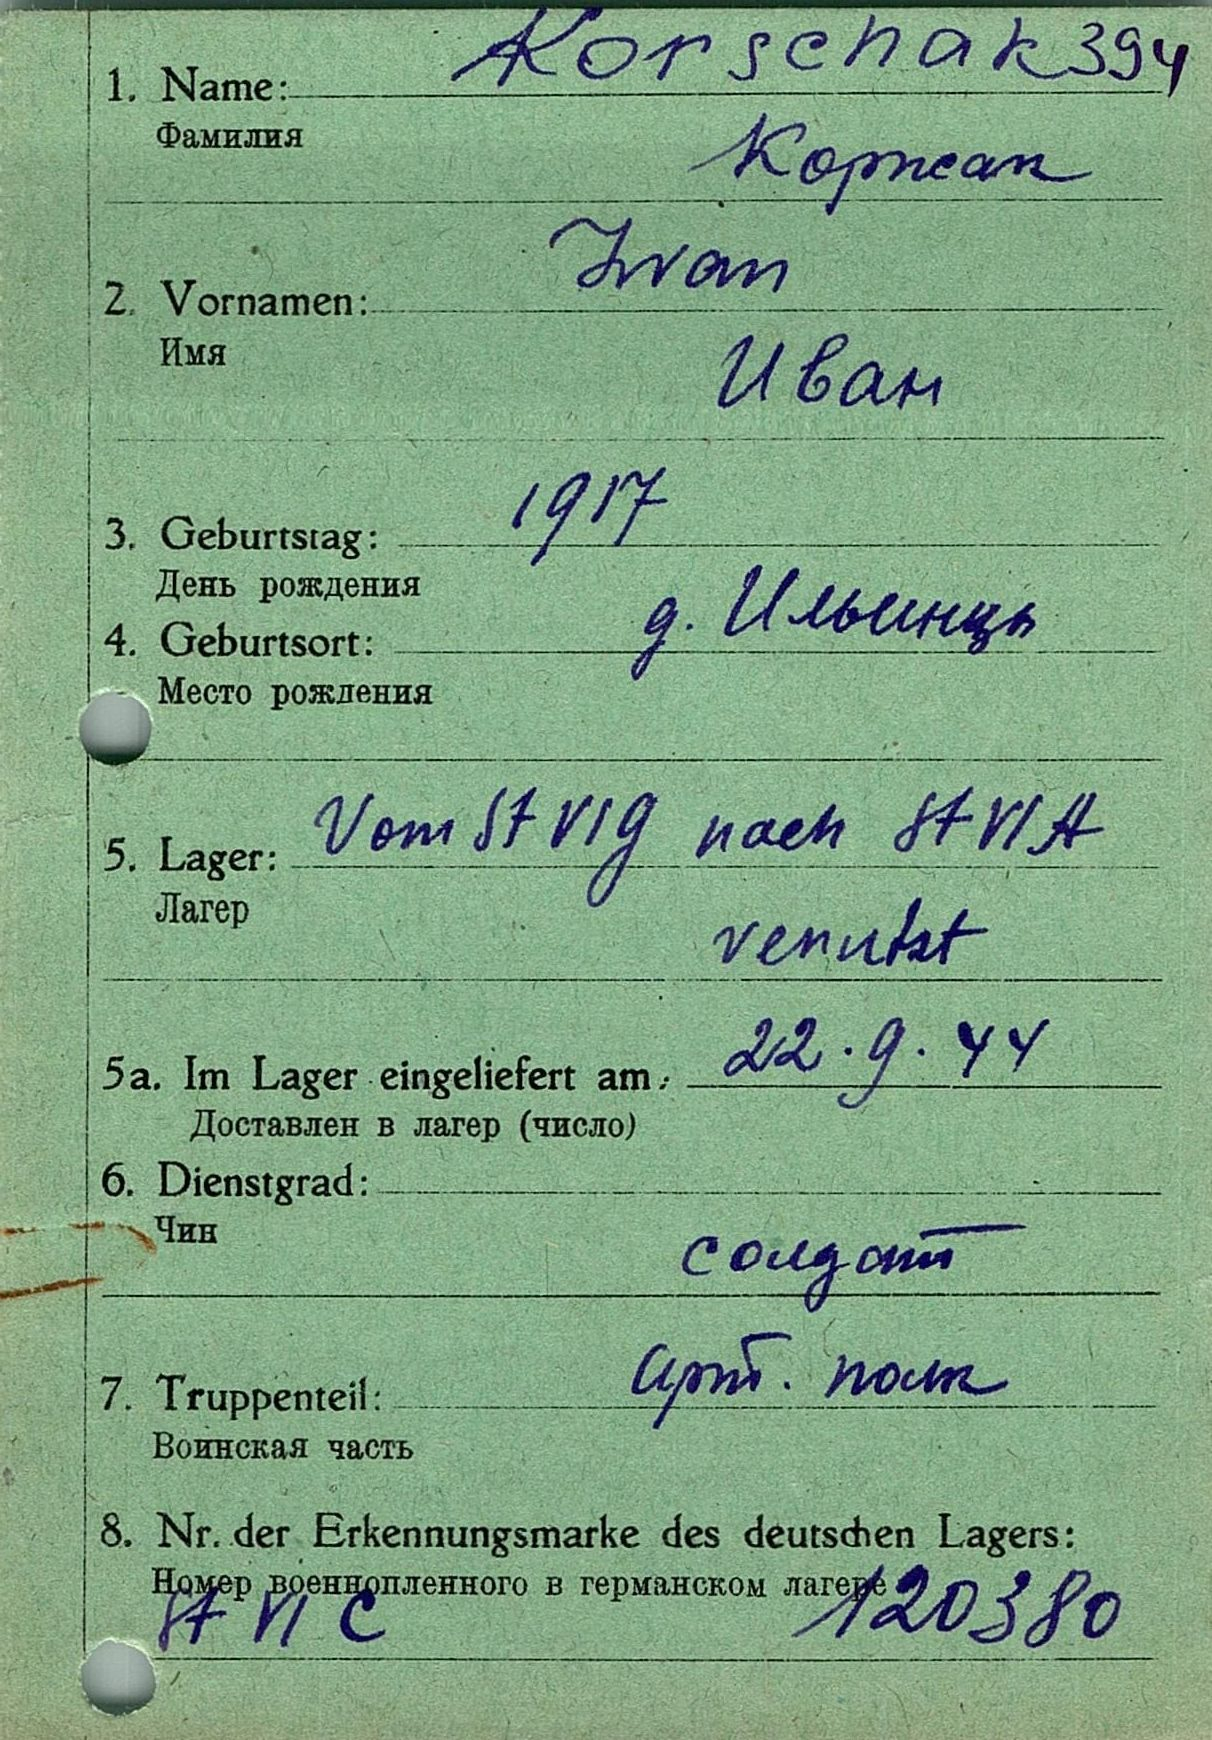 Korschak 394
1. Name:
Фамилия
Коржак
Iwan
2. Vornamen:
Имя
Иван
3. Geburtstag: 1917
День рождения
4. Geburtsort: д. Ильинцы
Место рождения
5. Lager: Vom St VI G nach St VI A
Лагер
versetzt
5a. Im Lager eingeliefert am: 22.9.44
Доставлен в лагер (число)
6. Dienstgrad:
Чин
солдат
7. Truppenteil: арт. полк
Воинская часть
8. Nr. der Erkennungsmarke des deutschen Lagers:
Номер военнопленного в германском лагере
St VI C 120380